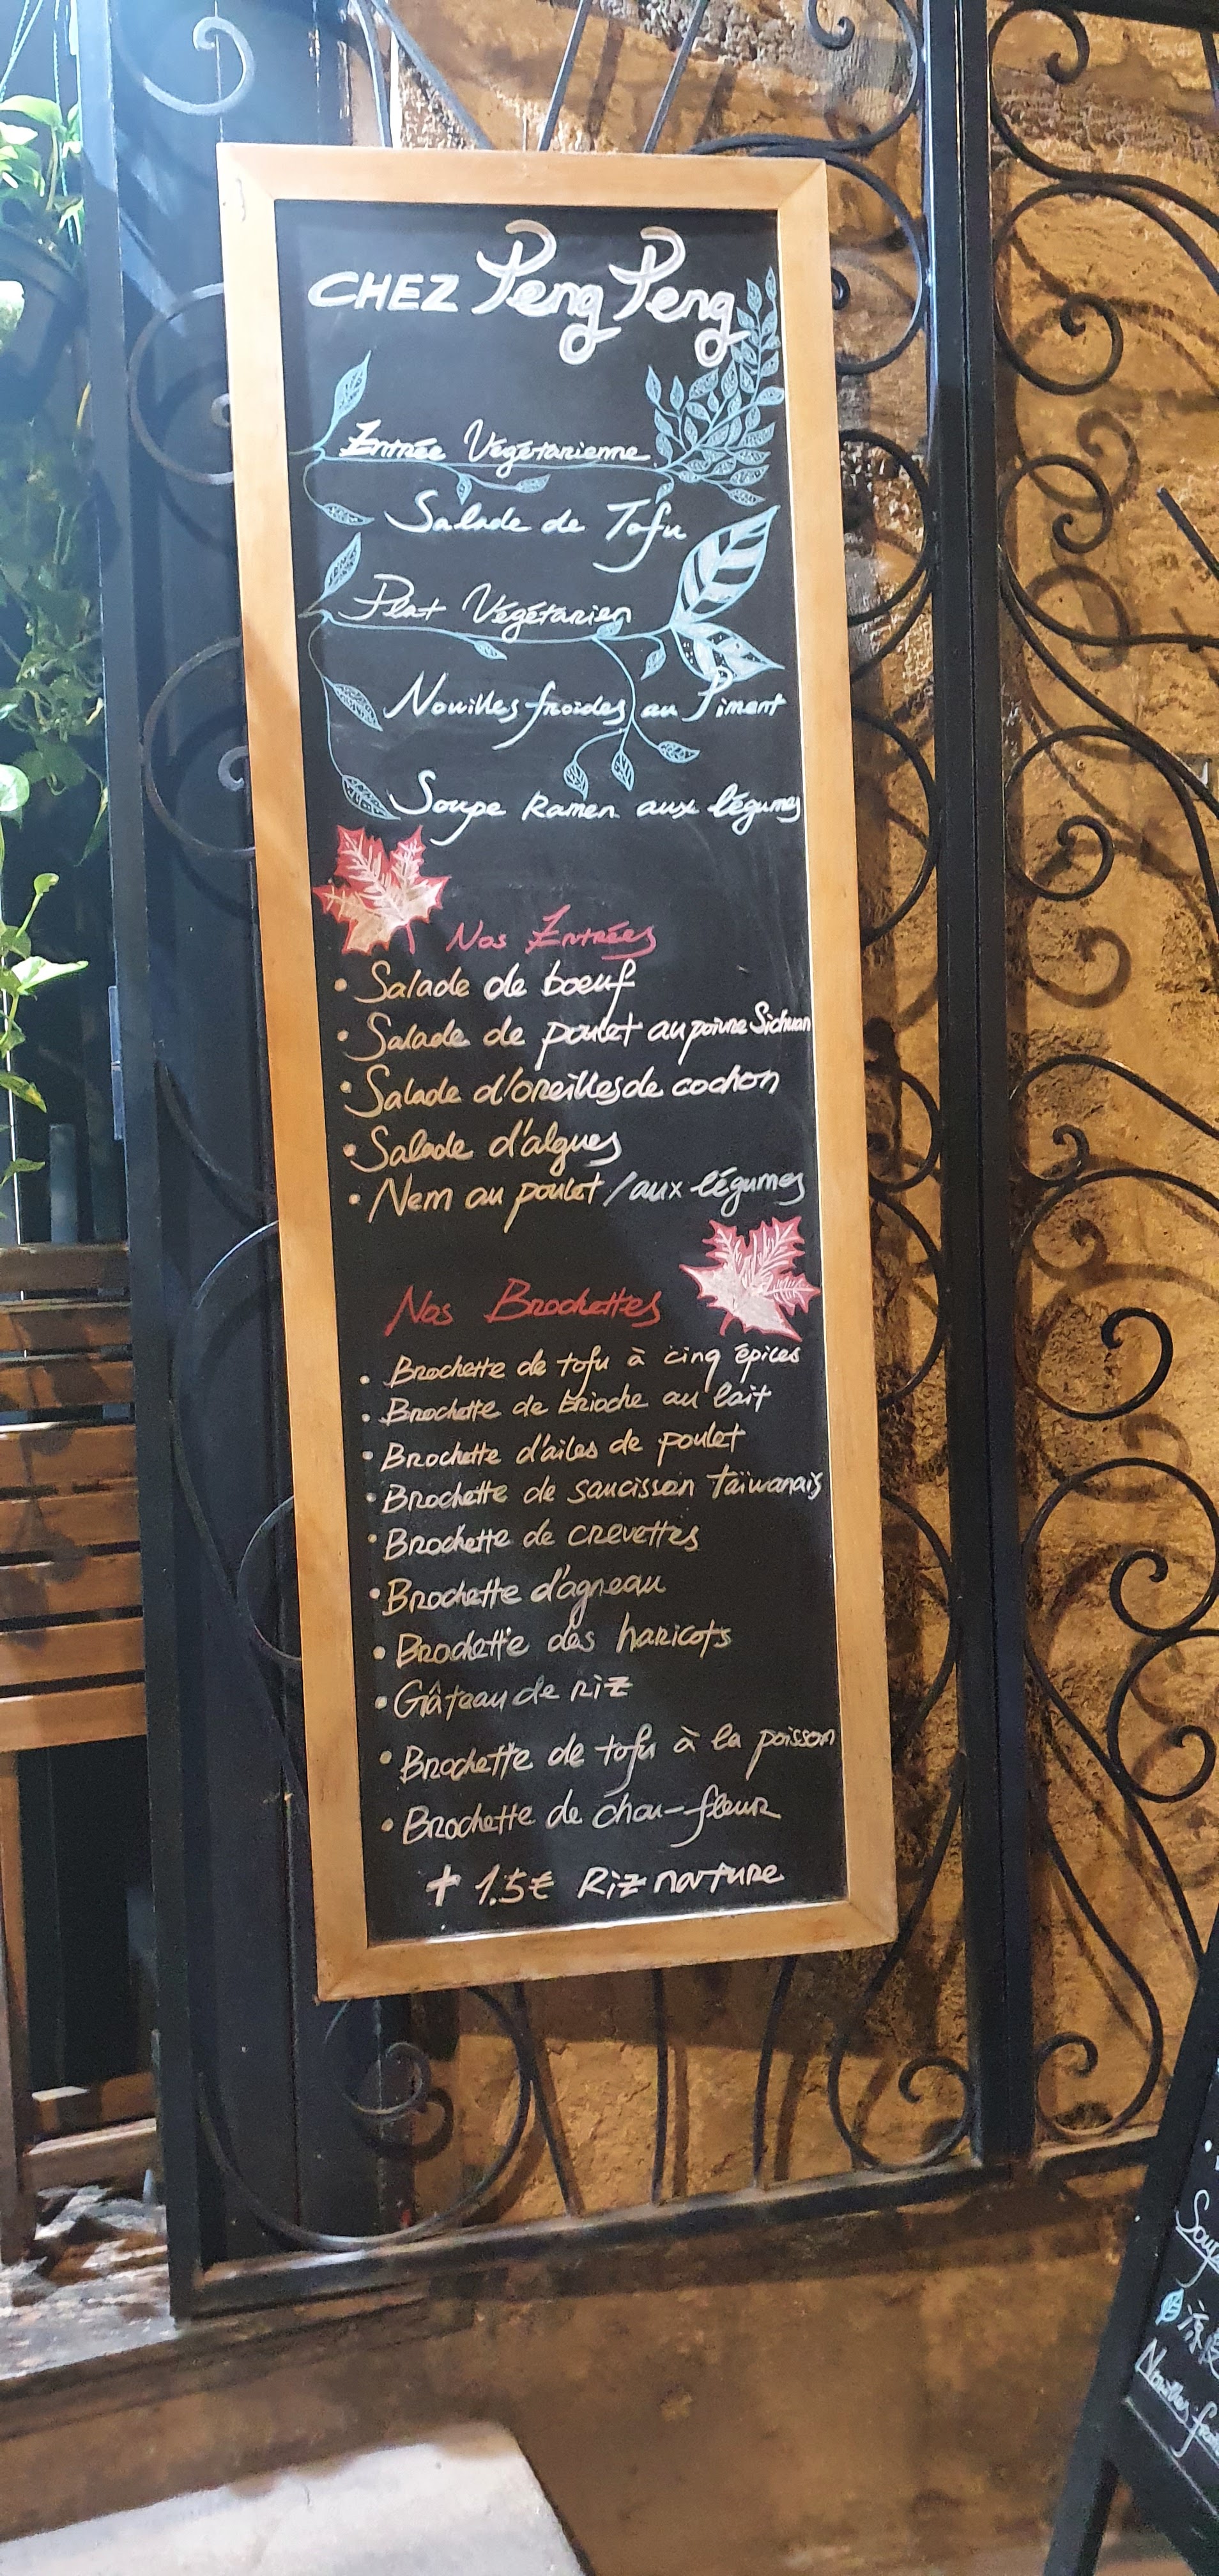 CHEZ Peng Peng
Entrée Végétarienne
Salade de Tofu
Plat Végétarien
Nouilles froides au Piment
Soupe Ramen aux légumes
Nos Entrées
• Salade de boeuf
• Salade de poulet au poivre Sichuan
• Salade d'oreilles de cochon
• Salade d'algues
• Nem au poulet / aux légumes
Nos Brochettes
• Brochette de tofu à cinq épices
• Brochette de brioche au lait
• Brochette d'ailes de poulet
• Brochette de saucisson taïwanais
• Brochette de crevettes
• Brochette d'agneau
• Brochette des haricots
• Gâteau de riz
• Brochette de tofu à la poisson
• Brochette de chou-fleur
+ 1.5€ Riz nature